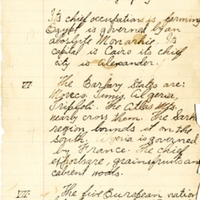 Its chief occupation is farming
Egypt is governed by an
absolute Monarchic. Its
capital is Cairo its chief
city is Alexander.
VI The Barbary States are:
Moroco, Tunis, Algeria,
Tripoli. The Atlas Mts.
nearly cross them. The Sarh
region bounds it on the
south. is governed
by France. The chief
are, grains, fruits and
cabinet woods.
VII The five European nation